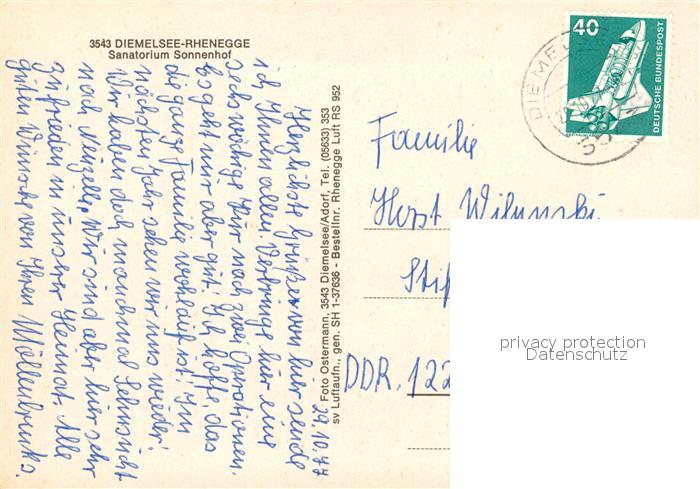 3543 DIEMELSEE-RHENEGGE
Sanatorium Sonnenhof
29.10.77
Herzlichste Grüße von hier sende
ich Ihnen allen. Verbringe hier eine
sechswöchige Kur nach zwei Operationen.
Es geht mir aber gut! Ich hoffe, das
die ganze Familie wohlauf ist! Im
nächsten Jahr sehen wir uns wieder!
Wir haben doch manchmal Sehnsucht
nach Neuzelle. Wir sind aber hier sehr
zufrieden in unserer Heimat. Alle
guten Wünsche von Ihren Möllenbrucks.
Foto Ostermann, 3543 Diemelsee/Adorf, Tel. (05633) 353
sv Luftaufn., gen. SH 1-37636 - Bestellnr. Rhenegge Luft RS 952
40
DEUTSCHE BUNDESPOST
DIEMEL
Familie
Horst Wilunski
DDR. 122
privacy protection
Datenschutz